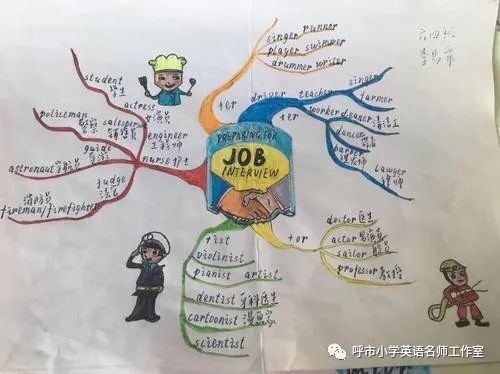 六四班
PREPARING FOR
JOB
INTERVIEW
+er
singer runner
player swimmer
drummer writer
+er
driver
teacher
singer
farmer
worker
cleaner 清洁工
dancer
barber
理发师
lawyer
律师
+or
doctor 医生
actor 男演员
sailor 船员
professor 教授
+ist
violinist
pianist artist
dentist 牙科医生
cartoonist 漫画家
scientist
student
学生
actress
女演员
policeman
警察
salesperson
销售员
engineer
工程师
guide
导游
nurse 护士
astronaut 宇航员
judge
法官
消防员
fireman/firefighter
呼市小学英语名师工作室